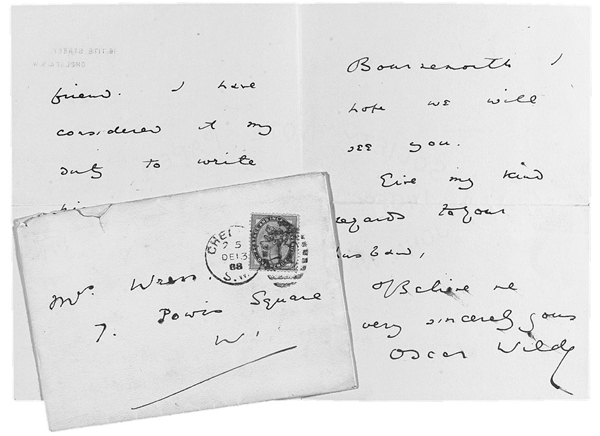 16, TITE STREET,
CHELSEA. S.W.
friend. I have
considered it my
duty to write
Bournemouth I
hope we will
see you.
Give my kind
regards to your
husband,
Believe me
very sincerely yours
Oscar Wilde
CHEL
2 5
DE 13
88
S.W.
Mrs
7. Powis Square
W.